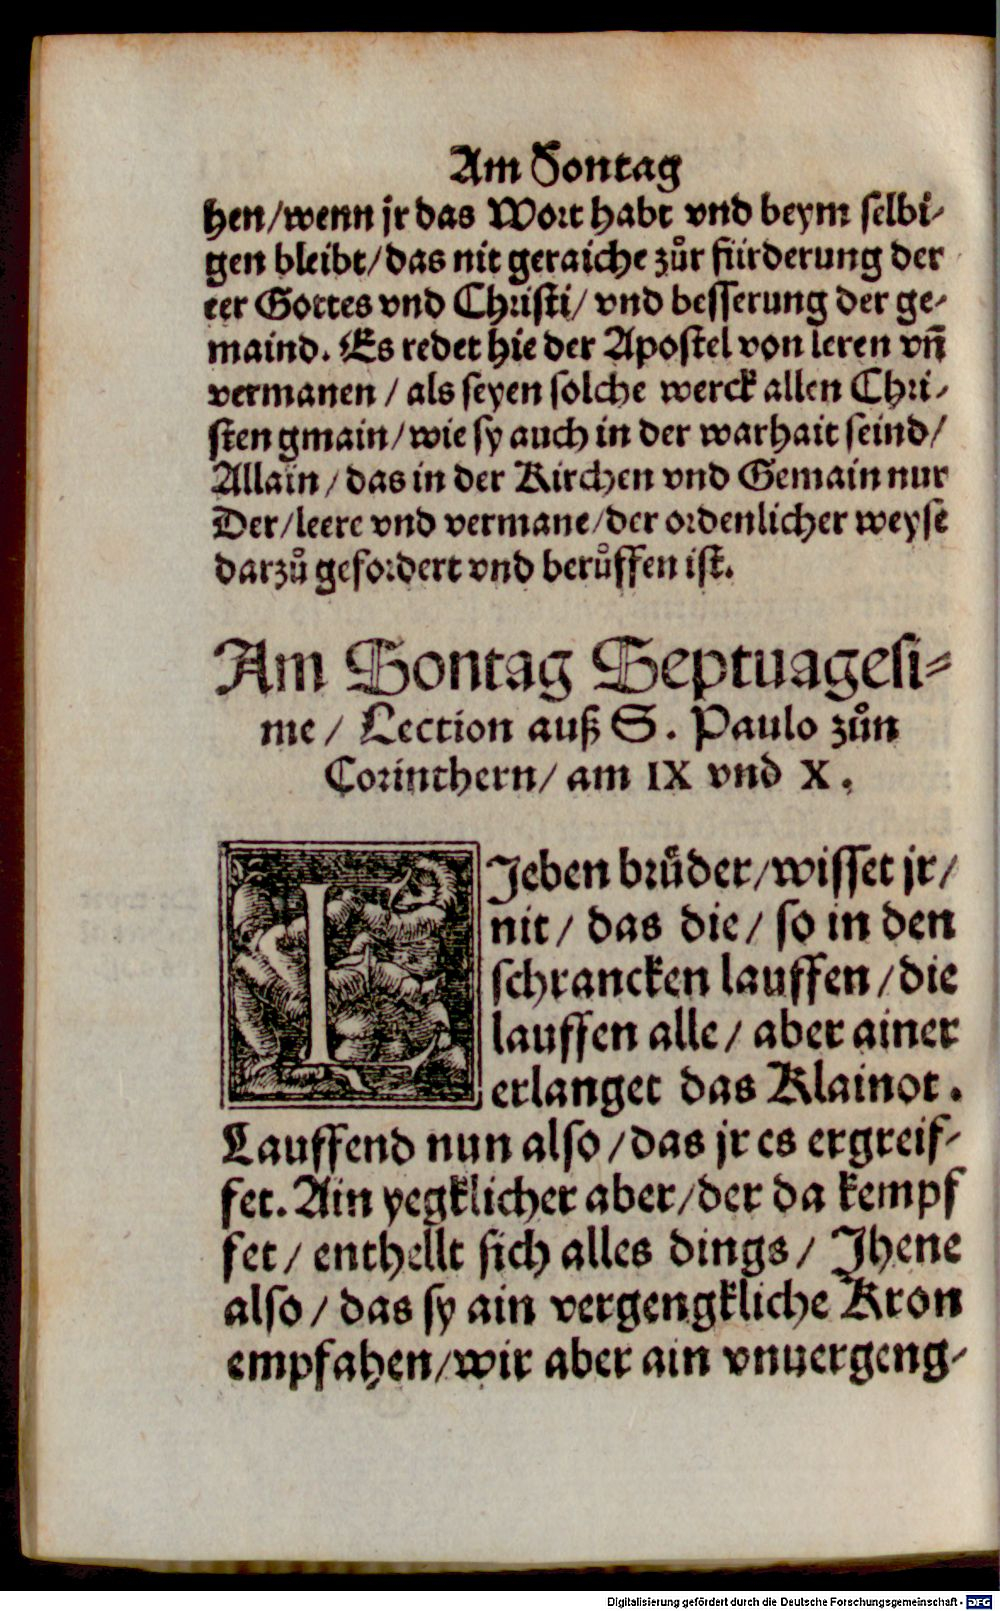 Am Sontag
hen/wenn jr das Wort habt vnd beym selbi-
gen bleibt/das nit geraiche zůr fürderung der
eer Gottes vnd Christi/ vnd besserung der ge-
maind. Es redet hie der Apostel von leren vñ
vermanen / als seyen solche werck allen Chri-
sten gmain/wie sy auch in der warhait seind/
Allain / das in der Kirchen vnd Gemain nur
Der/leere vnd vermane/der ordenlicher weyse
darzů gefordert vnd berůffen ist.
Am Sontag Septuagesi-
me / Lection auß S. Paulo zůn
Corinthern/ am IX vnd X.
LJeben brůder/wisset jr/
nit/ das die/ so in den
schrancken lauffen/die
lauffen alle/ aber ainer
erlanget das Klainot.
Lauffend nun also/das jr es ergreif-
fet. Ain yegklicher aber/der da kempf
fet/ enthellt sich alles dings/ Jhene
also/ das sy ain vergengkliche Kron
empfahen/wir aber ain vnuergeng-
Digitalisierung gefördert durch die Deutsche Forschungsgemeinschaft - DFG